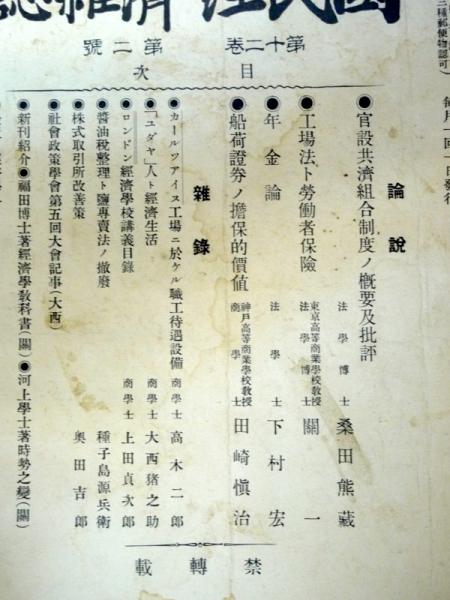 國民經濟雜誌
第十二卷 第二號
目次
論說
●官設共濟組合制度ノ概要及批評 法學博士 桑田熊藏
●工場法ト勞働者保險 東京高等商業學校敎授 法學博士 關一
●年金論 法學士 下村宏
●船荷證券ノ擔保的價値 神戶高等商業學校敎授 商學士 田崎愼治
雜錄
●カールツアイス工場ニ於ケル職工待遇設備 商學士 高木二郞
●「ユダヤ」人ト經濟生活 商學士 大西猪之助
●ロンドン經濟學校講義目錄 商學士 上田貞次郞
●醬油稅整理ト鹽專賣法ノ撤廢 種子島源兵衞
●株式取引所改善策 奧田吉郞
●社會政策學會第五回大會記事(大西)
●新刊紹介●福田博士著經濟學敎科書(關)●河上學士著時勢之變(關)
禁轉載
三種郵便物認可)
每月一回一日發行